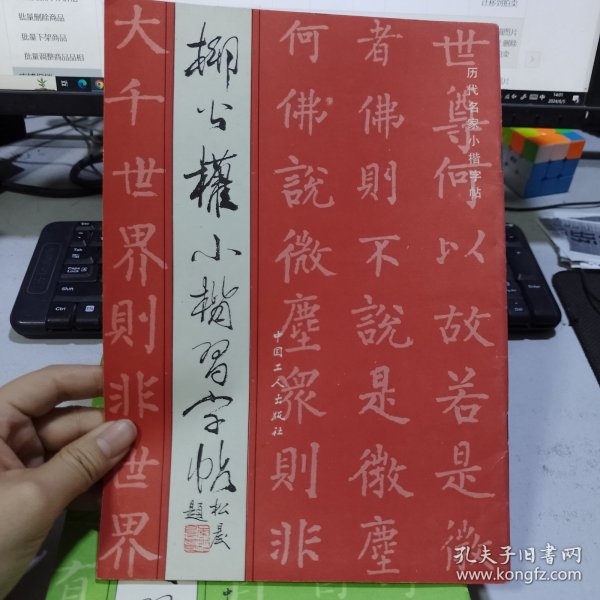 批量删除商品
批量下架商品
批量调整商品品相
历代名家小楷字帖
柳公权小楷习字帖
松晨
题
中国工人出版社
世尊何以故若是微
者佛則不說是微塵
何佛說微塵眾則非
大千世界則非世界
孔夫子旧书网
www.kongfz.com